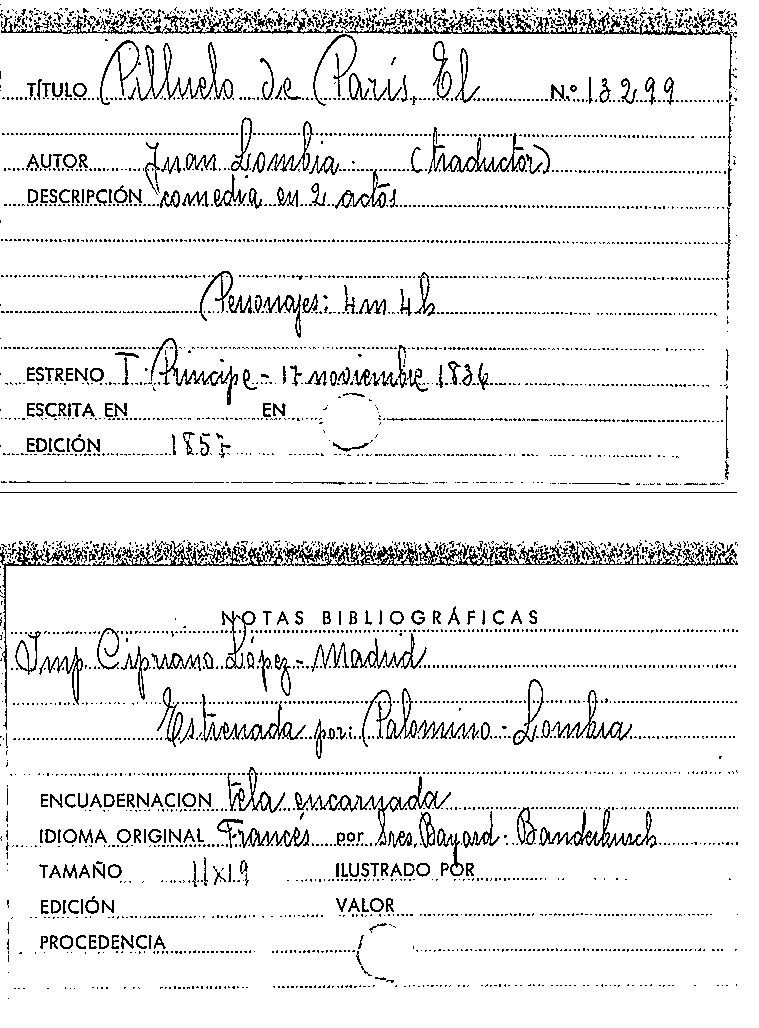 TÍTULO Pilluelo de París, El N.º 13299
AUTOR Juan Lombia. (traductor)
DESCRIPCIÓN comedia en 2 actos
Personajes: 4m 4h
ESTRENO T. Principe - 17 noviembre 1836
ESCRITA EN EN
EDICIÓN 1857
NOTAS BIBLIOGRÁFICAS
Imp Cipriano López - Madrid
Estrenada por: Palomino - Lombia
ENCUADERNACION tela encarnada
IDIOMA ORIGINAL Francés por Sres. Bayard - Banderbusch
TAMAÑO 11x19 ILUSTRADO POR
EDICIÓN VALOR
PROCEDENCIA